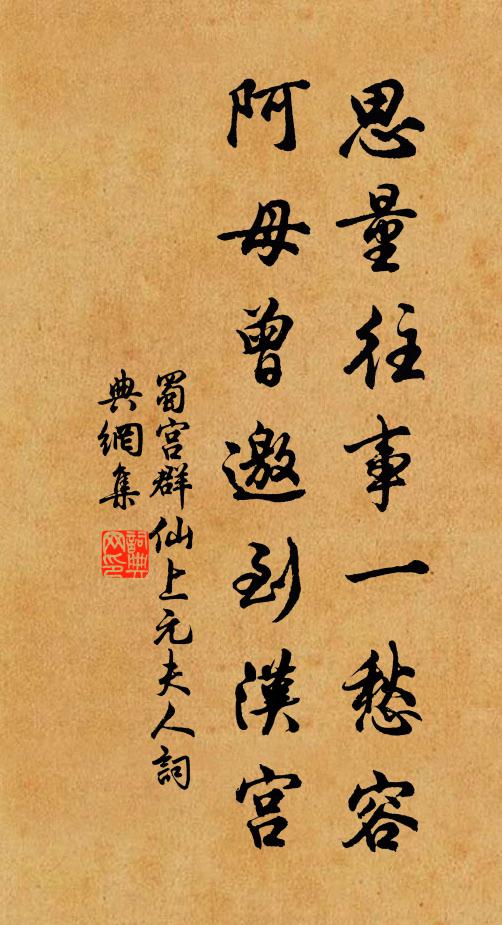 思量往事一愁容
阿母曾邀到漢宮
蜀宮群仙上元夫人詞
典網集
詞典网印